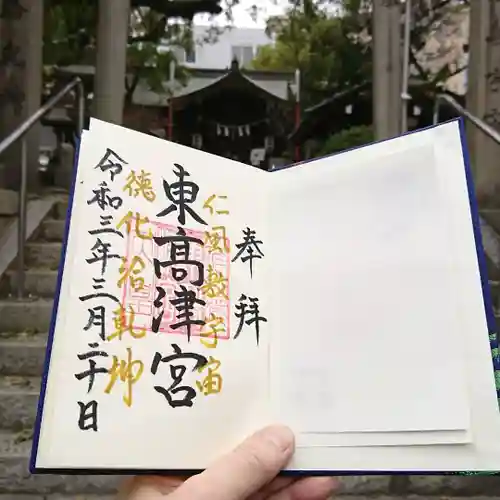 奉拝
仁風敷宇宙
東高津宮
徳化洽乾坤
令和三年三月二十日